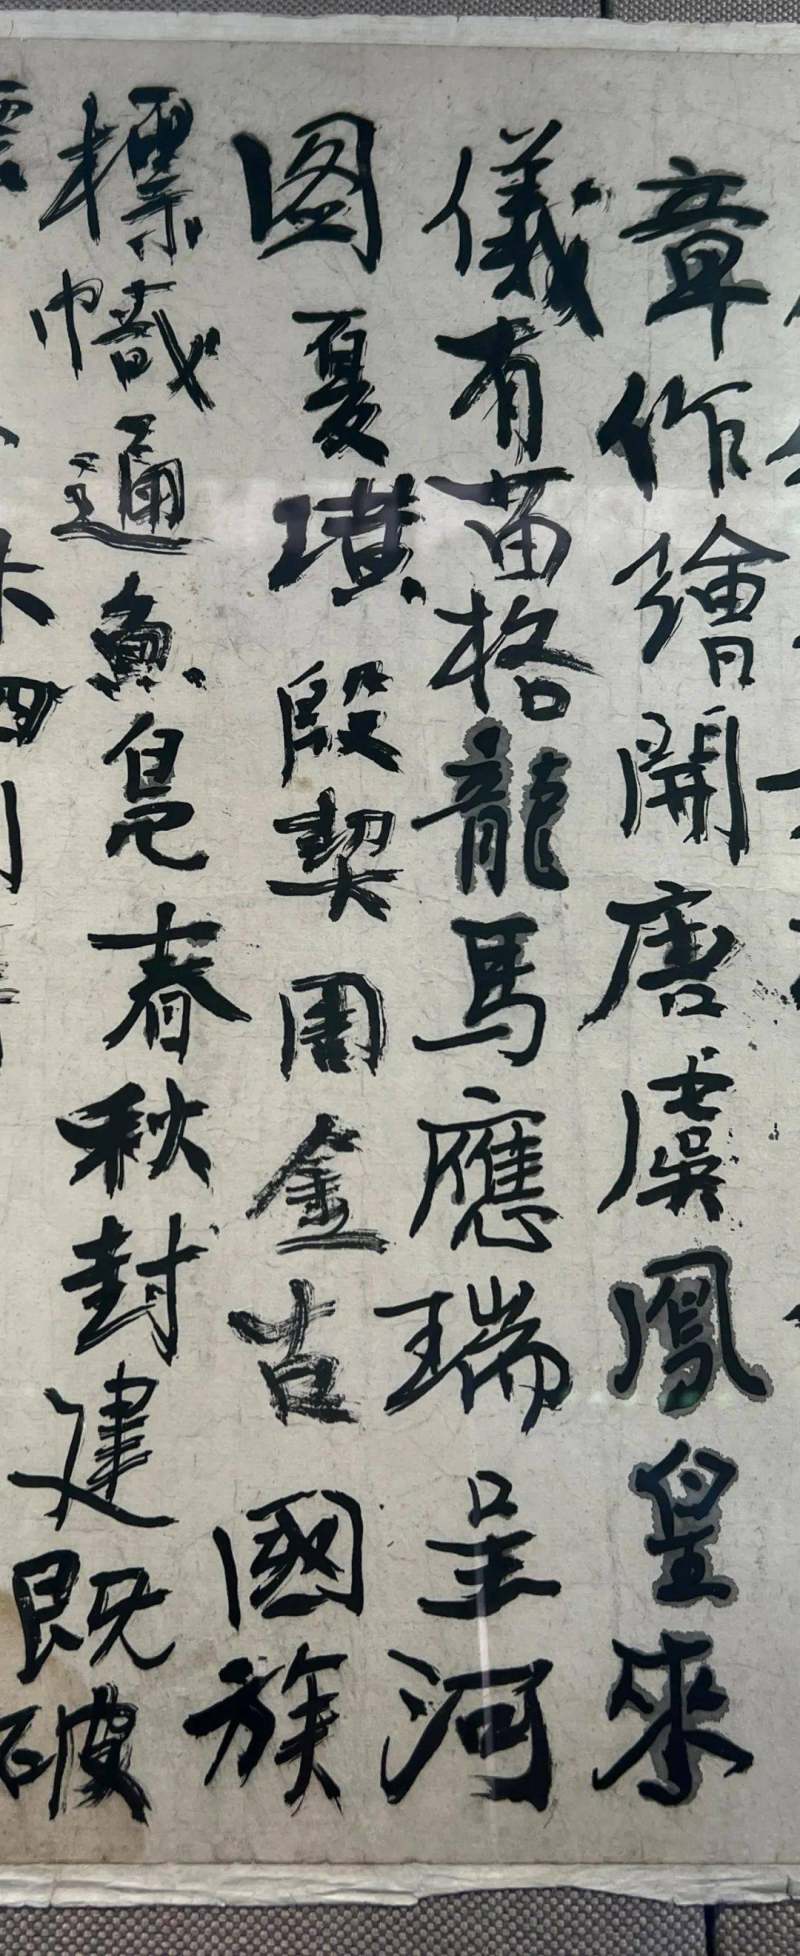 章作繪開唐虞鳳皇來
儀有苗格龍馬應瑞呈河
图夏璜殷契周金古國族
標幟通魚鳧春秋封建既破